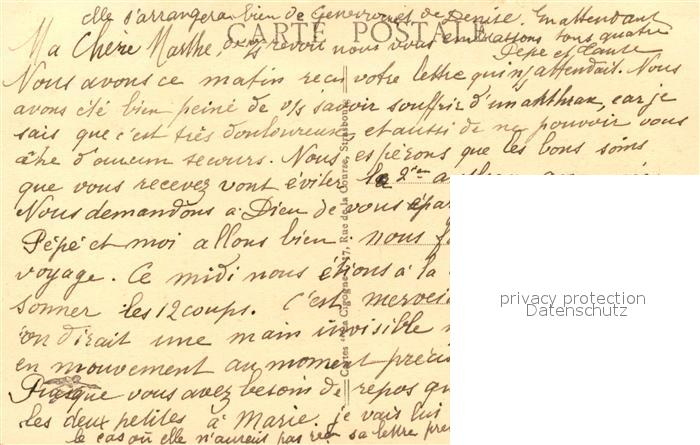 elle s'arrangera bien de Geneviève et de Denise. En attendant
CARTE POSTALE
Ma Chère Marthe, de vs revoir nous vous embrassons tous quatre
Pépé et
Nous avons ce matin reçu votre lettre qui ns attendait. Nous
avons été bien peiné de v/s savoir souffrir d'un anthrax, car je
sais que c'est très douloureux, et aussi de ne pouvoir vous
être d'aucun secours. Nous espérons que les bons soins
que vous recevez vont éviter le 2ien
Nous demandons à Dieu de vous épar
Pépé et moi allons bien. nous f
voyage. Ce midi nous étions à la
sonner les 12 coups. C'est mervei
on dirait une main invisible
en mouvement au moment précis
Puisque vous avez besoin de repos qu
les deux petites à Marie. je vais lui
le cas où elle n'aurait pas reçu sa lettre pre
Cartes "La Cigogne" 37, Rue de la Course, Strasbourg
privacy protection
Datenschutz